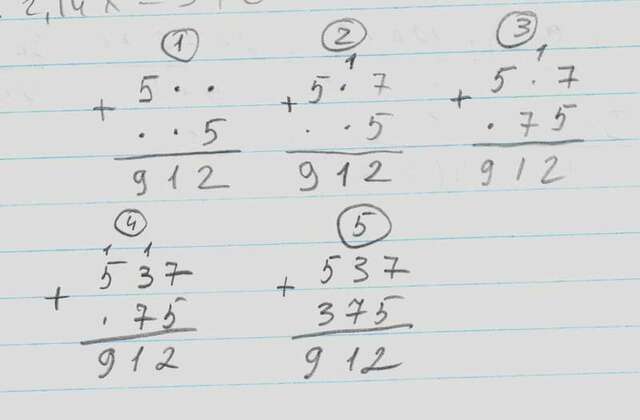 2,14x
① ② ③
1 1
5 · · 5 · 7 5 · 7
+ + +
· · 5 · · 5 · 7 5
9 1 2 9 1 2 9 1 2
④ ⑤
1 1
5 3 7 5 3 7
+ +
· 7 5 3 7 5
9 1 2 9 1 2